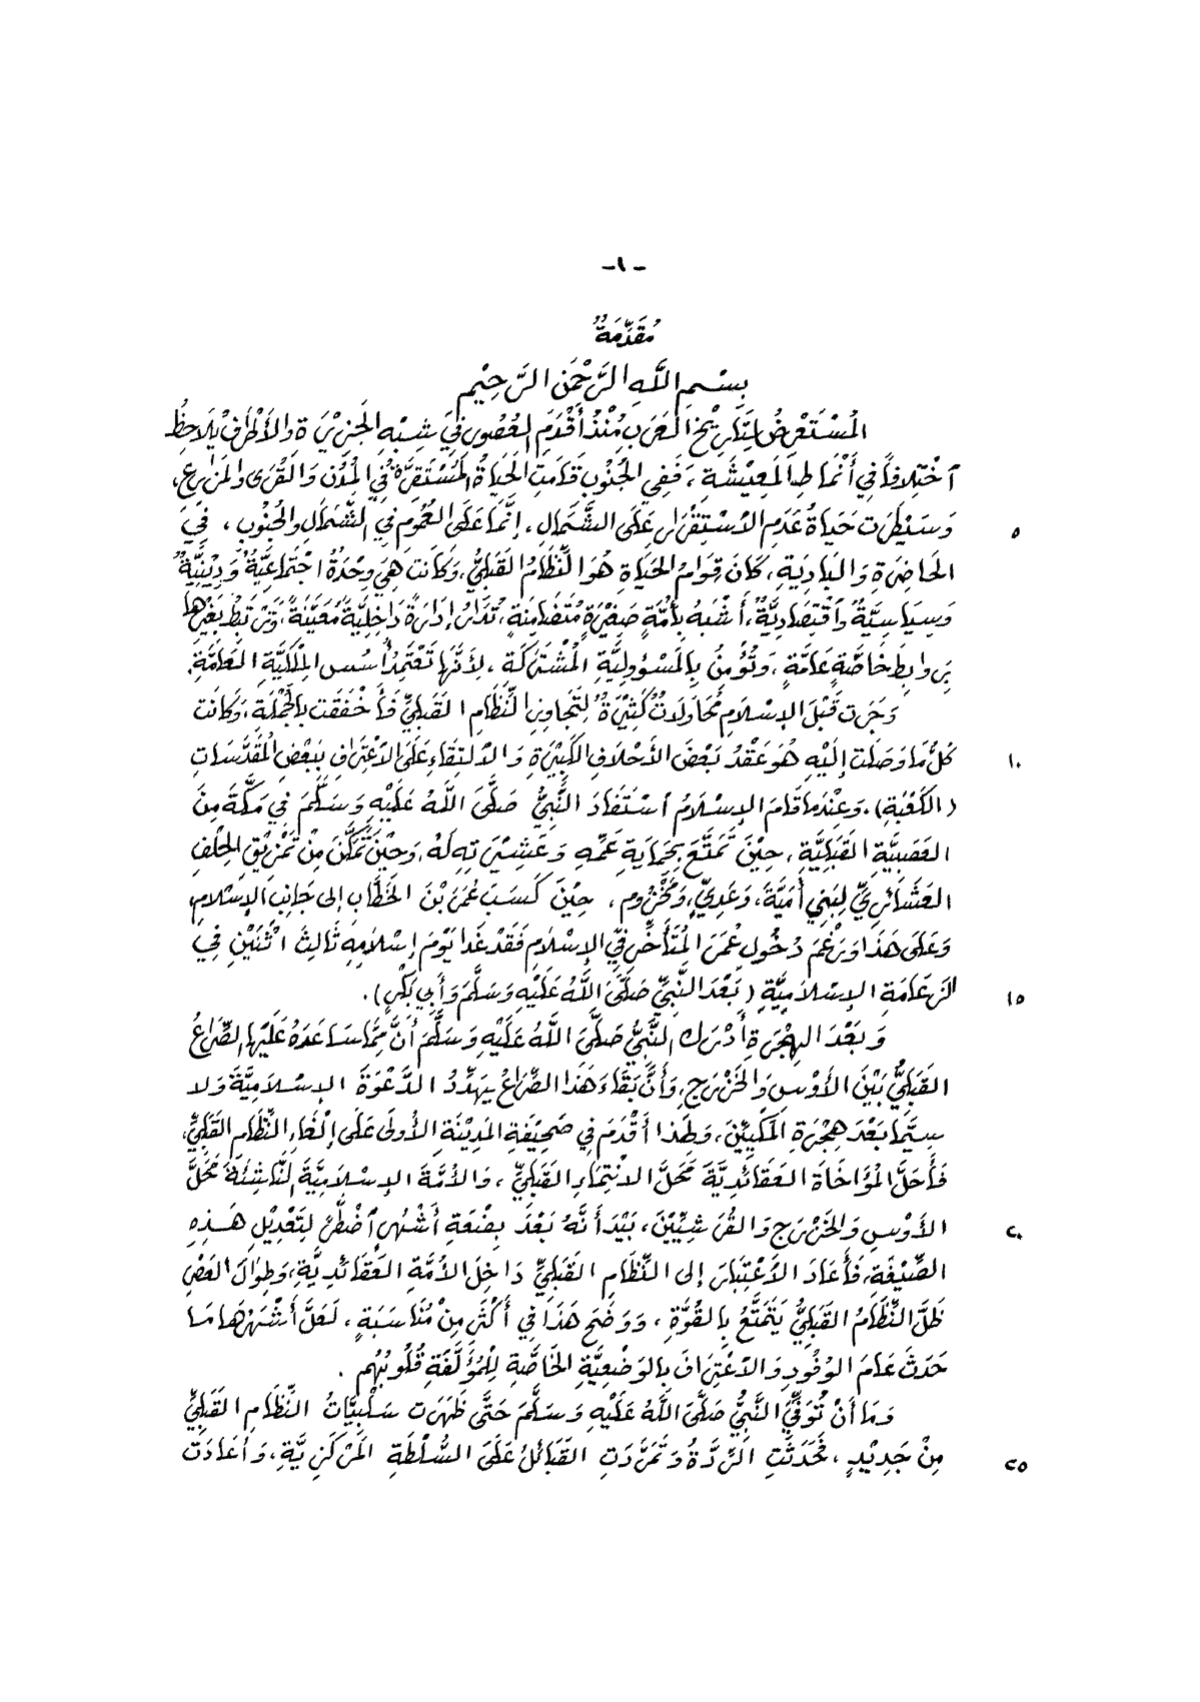 -١-
مُقَدِّمَةٌ
بِسْمِ اللَّهِ الرَّحْمَنِ الرَّحِيْمِ
المُسْتَعْرِضُ لِتَارِيْخِ العَرَبِ مُنْذُ أَقْدَمِ العُصُورِ فِي شِبْهِ الجَزِيْرَةِ وَالأَطْرَافِ يُلَاحِظُ
اخْتِلَافاً فِي أَنْمَاطِ المَعِيْشَةِ، فَفِي الجُنُوبِ قَامَتِ الحَيَاةُ المُسْتَقِرَّةُ فِي المُدُنِ وَالقُرَى وَالمَزَارِعِ،
٥ وَسَيْطَرَت حَيَاةُ عَدَمِ الاسْتِقْرَارِ عَلَى الشَّمَالِ، إِنَّمَا عَلَى العُمُومِ فِي الشَّمَالِ وَالجُنُوبِ، فِي
الحَاضِرَةِ وَالبَادِيَةِ، كَانَ قِوَامُ الحَيَاةِ هُوَ النِّظَامُ القَبَلِيُّ، وَكَانَت هِيَ وِحْدَةٌ اجْتِمَاعِيَّةٌ وَدِيْنِيَّةٌ
وَسِيَاسِيَّةٌ وَاقْتِصَادِيَّةٌ، أَشْبَهُ بِأُمَّةٍ صَغِيْرَةٍ مُتَضَامِنَةٍ، تُدَارُ إِدَارَةً دَاخِلِيَّةً مُعَيَّنَةً، وَتَرْتَبِطُ بِغَيْرِهَا
بِرَوَابِطَ خَاصَّةٍ عَامَّةٍ، وَتُؤْمِنُ بِالمَسْؤُولِيَّةِ المُشْتَرَكَةِ، لِأَنَّهَا تَعْتَمِدُ أُسُسِ المِلْكِيَّةِ العَامَّةِ.
وَجَرَت قَبْلَ الإِسْلَامِ مُحَاوَلَاتٌ كَثِيْرَةٌ لِتَجَاوِزِ النِّظَامِ القَبَلِيِّ فَأَخْفَقَت بِالجُمْلَةِ، وَكَانَت
١٠ كُلُّ مَا وَصَلَت إِلَيْهِ هُوَ عَقْدُ بَعْضَ الأَحْلَافِ الكَبِيْرَةِ وَالالتِقَاءِ عَلَى الاعْتِرَافِ بِبَعْضِ المُقَدَّسَاتِ
(الكَعْبَةِ). وَعِنْدَمَا قَامَ الإِسْلَامُ اسْتَفَادَ النَّبِيُّ صَلَّى اللَّهُ عَلَيْهِ وَسَلَّمَ فِي مَكَّةَ مِنَ
العَصَبِيَّةِ القَبَلِيَّةِ، حِيْنَ تَمَتَّعَ بِحِمَايَةِ عَمِّهِ وَعَشِيْرَتِهِ لَهُ، وَحِيْنَ تَمَكَّنَ مِنْ تَمْزِيْقِ الحِلْفِ
العَشَائِرِيِّ لِبَنِي أُمَيَّةَ، وَعَدِيٍّ، وَمَخْزُومٍ، حِيْنَ كَسَبَ عُمَرَ بْنَ الخَطَّابِ إِلى جَانِبِ الإِسْلَامِ،
وَعَلَى هَذَا وَرَغْمَ دُخُولِ عُمَرَ المُتَأَخِّرِ فِي الإِسْلَامِ فَقَدْ غَدَا يَوْمَ إِسْلَامِهِ ثَالِثَ اثْنَيْنِ فِي
١٥ الزَّعَامَةِ الإِسْلَامِيَّةِ (بَعْدَ النَّبِيِّ صَلَّى اللَّهُ عَلَيْهِ وَسَلَّمَ وَأَبِي بَكْرٍ).
وَبَعْدَ الهِجْرَةِ أَدْرَكَ النَّبِيُّ صَلَّى اللَّهُ عَلَيْهِ وَسَلَّمَ أَنَّ مِمَّا سَاعَدَهُ عَلَيْهَا الصِّرَاعُ
القَبَلِيُّ بَيْنَ الأَوْسِ وَالخَزْرَجِ، وَأَنَّ بَقَاءَ هَذَا الصِّرَاعِ يُهَدِّدُ الدَّعْوَةَ الإِسْلَامِيَّةَ وَلا
سِيَّمَا بَعْدَ هِجْرَةِ المَكِّيِّيْنَ، وَلِهَذَا أَقْدَمَ فِي صَحِيْفَةِ المَدِيْنَةِ الأُولَى عَلَى إِلْغَاءِ النِّظَامِ القَبَلِيِّ،
فَأَحَلَّ المُؤَاخَاةَ العَقَائِدِيَّةَ مَحَلَّ الانْتِمَاءِ القَبَلِيِّ، وَالأُمَّةَ الإِسْلَامِيَّةَ النَّاشِئَةَ مَحَلَّ
٢٠ الأَوْسِ وَالخَزْرَجِ وَالقُرَشِيِّيْنَ، بَيْدَ أَنَّهُ بَعْدَ بِضْعَةِ أَشْهُرٍ اضْطُرَّ لِتَعْدِيْلِ هَذِهِ
الصِّيْغَةِ، فَأَعَادَ الاعْتِبَارَ إِلى النِّظَامِ القَبَلِيِّ دَاخِلَ الأُمَّةِ العَقَائِدِيَّةِ، وَطِوَالَ العَصْرِ
ظَلَّ النِّظَامُ القَبَلِيُّ يَتَمَتَّعُ بِالقُوَّةِ، وَوَضَحَ هَذَا فِي أَكْثَرَ مِنْ مُنَاسَبَةٍ، لَعَلَّ أَشْهَرَهَا مَا
حَدَثَ عَامَ الوُفُودِ وَالاعْتِرَافَ بِالوَضْعِيَّةِ الخَاصَّةِ لِلْمُؤَلَّفَةِ قُلُوبُهُم.
وَمَا أَنْ تُوُفِّيَ النَّبِيُّ صَلَّى اللَّهُ عَلَيْهِ وَسَلَّمَ حَتَّى ظَهَرَت سَلْبِيَّاتُ النِّظَامِ القَبَلِيِّ
٢٥ مِنْ جَدِيْدٍ، فَحَدَثَتِ الرِّدَّةُ وَتَمَرَّدَتِ القَبَائِلُ عَلَى السُّلْطَةِ المَرْكَزِيَّةِ، وَأَعَادَت